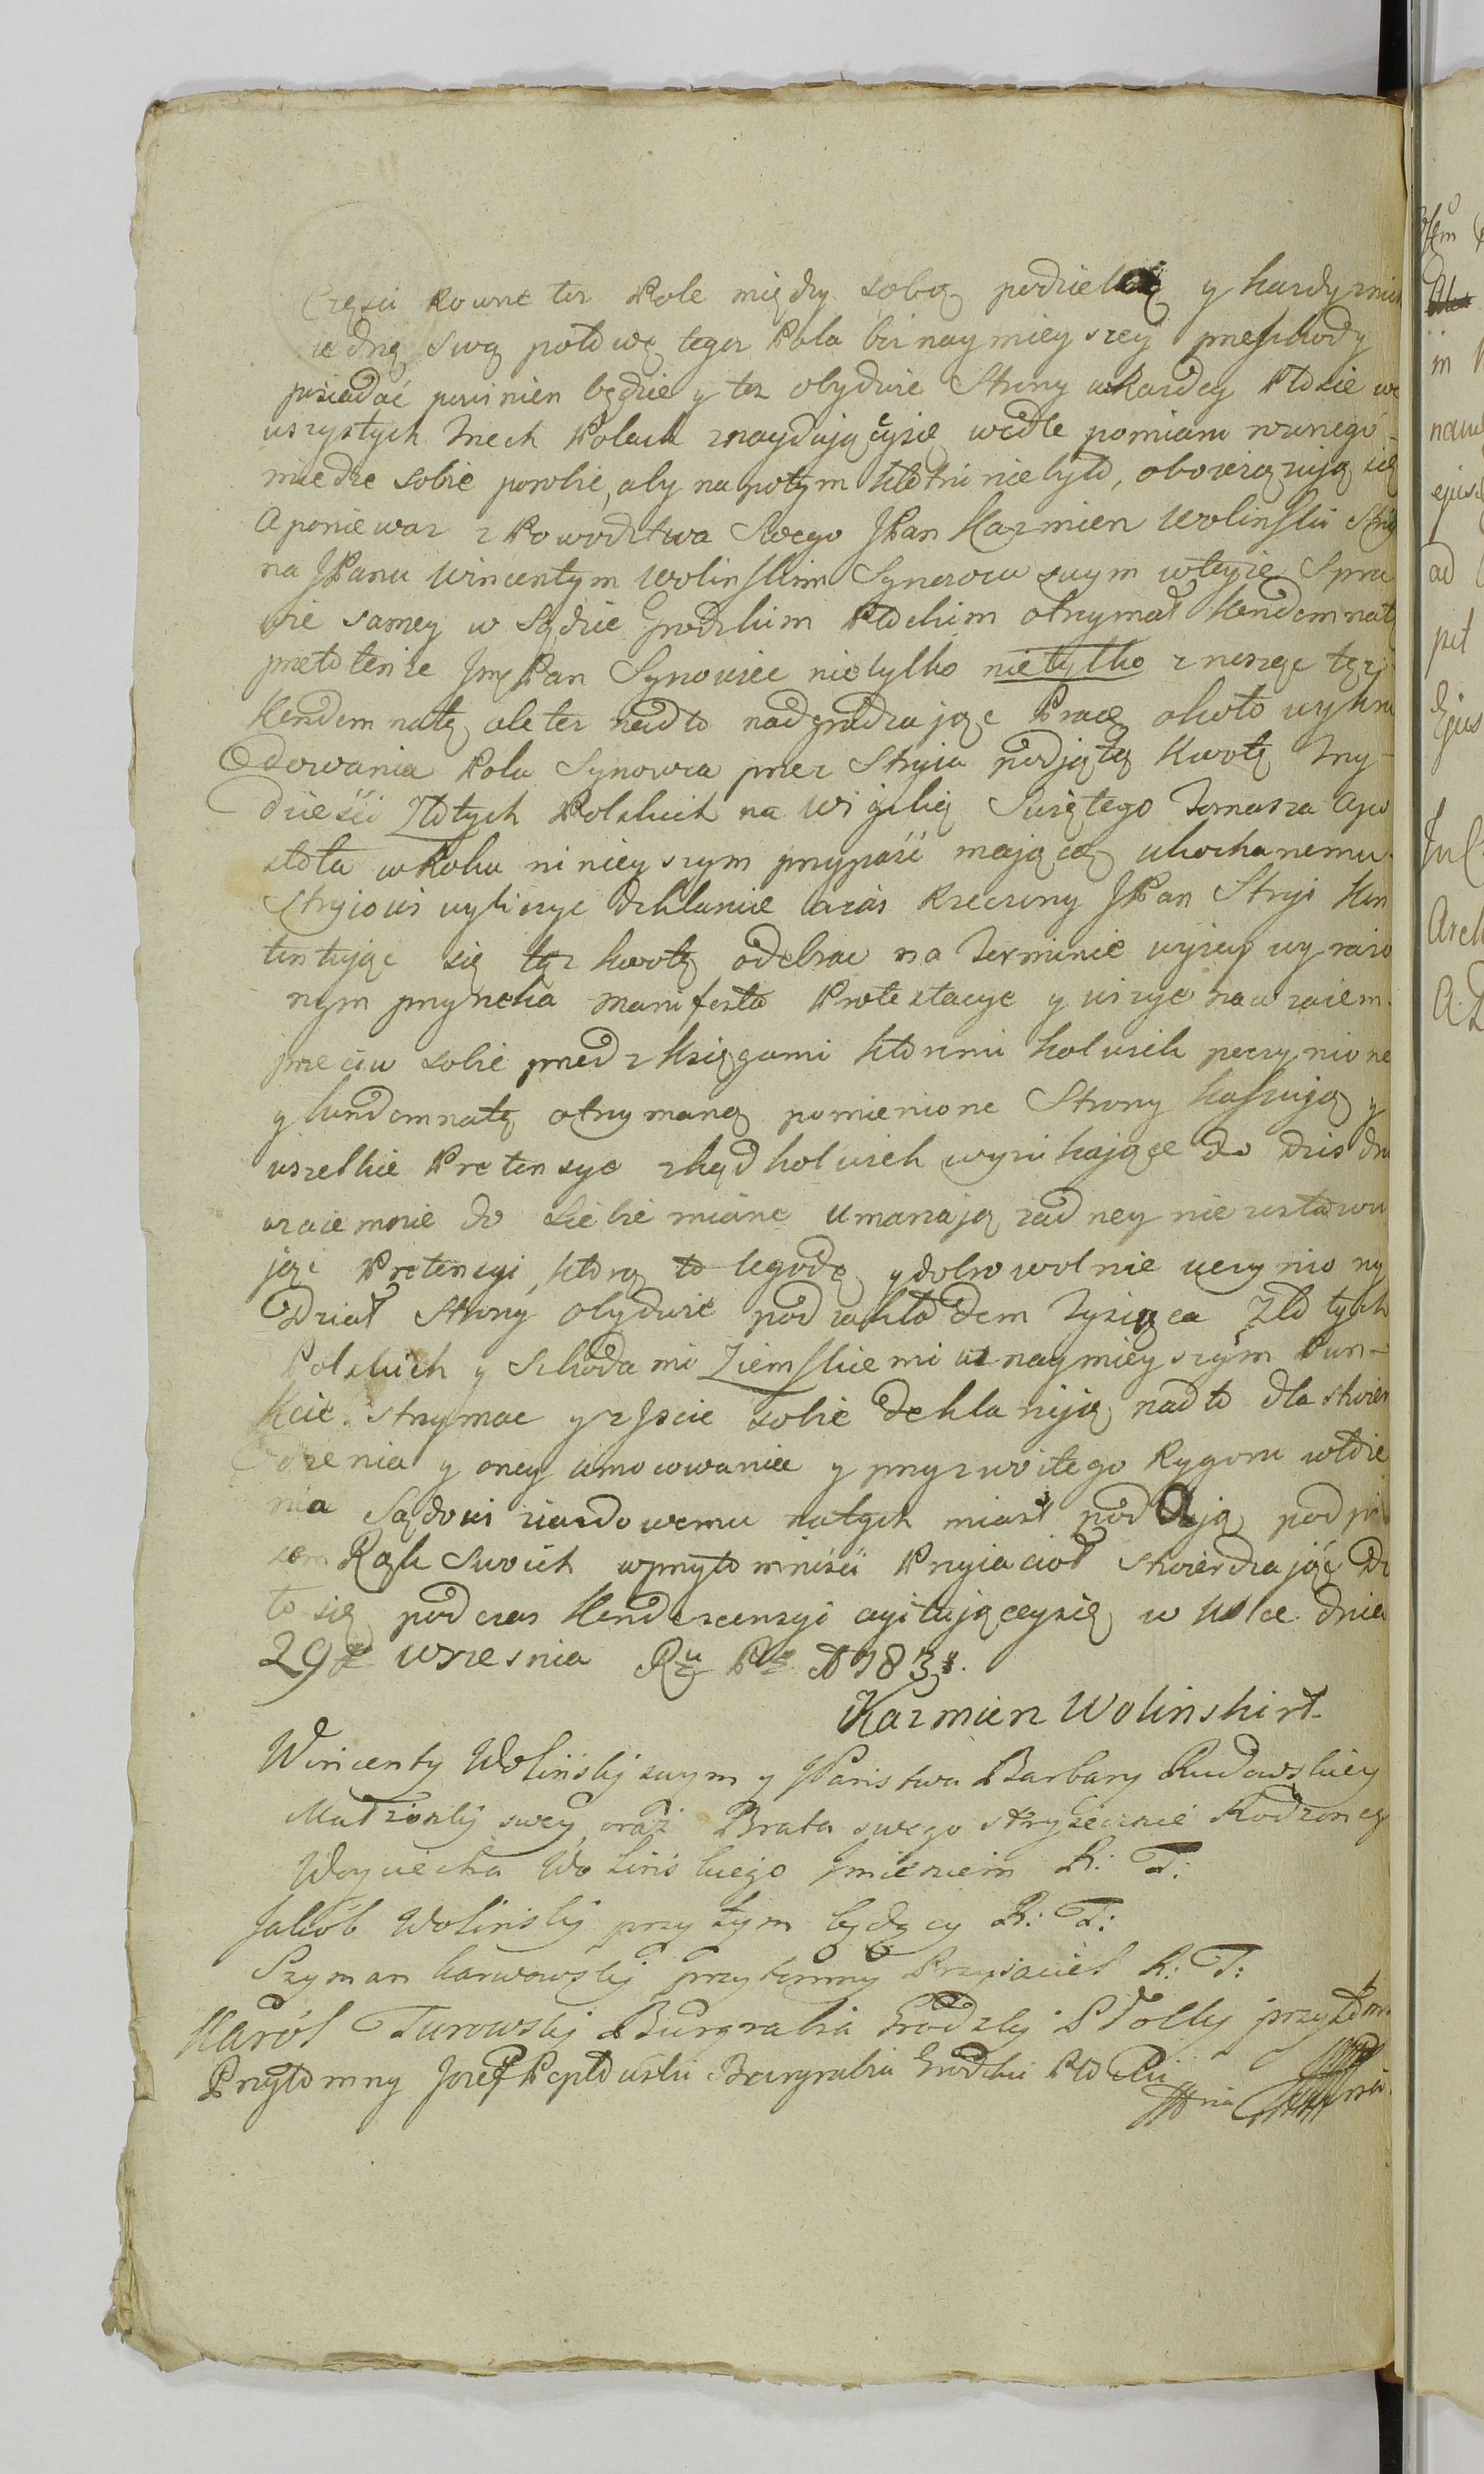 Części Rowne tez Pole między sobą podzielą y kazdy znich
iedną Swą połowę tegoz Pola bez naymnieyszey przeszkody
posiadać powinien będzie y tez obydwie Strony w Kazdey Płosie we
wszystkich trzech Polach znayduiącęysię wedle pomiaru rownego
miedze sobie porobić, aby napotym kłotni niebyło, obowiązuią się
A poniewaz z Powodztwa Swego JPan Kazmierz Wolinski Stryi
na JPanu Wincentym Wolinskim Synowcu swym w teyze Spra
wie samey w Sądzie Grodzkim Płockim otrzymał Kondemnatę
przeto tenze Jmę Pan Synowiec nietylko nietylko znosząc tęz
Kondemnatę ale tez nadto nadgradzaiąc Pracę około wykra
dowania Pola Synowca przez Stryia podjętą Kwotę Trzy-
dzieści Złotych Polskich na Wigilią Swiętego Tomasza Apo
stoła w Roku ninieyszym przypaść maiącą ukochanemu
Stryiowi wyliczyć deklaruie azas Rzeczony JPan Stryi Kon
tentuiąc się tąz kwotę odebrac na Terminie wyżey wyrazo
nym przyrzeka Manifesta Protestacye y wizye nawzaiem
przeciw sobie przed Xsięgami ktoremi kolwiek poczynione
y kondemnatę otrzymaną pomienione Strony kassuią y
wszelkie Pretensye zkąd kolwiek wynikaiące do dzis dnia
wzaiemnie do siebie miane umarzaią zadney nie zostawu
jąc Pretensyi, ktorą to ugodę y dobrowolnie uczyniony
Dział Strony obydwie pod zakładem Tysiąca Złotych
Polskich y Szkodami Ziemskiemi w naymnieyszym Pun-
kcie strzymac y zyscic sobie deklaruią nadto dla stwier
dzenia y oney umocowania y przyzwoitego Rygoru włoze
nia Sądowi ziazdowemu natych miast poddaią podpi
sem Rąk Swoich w przytomności Przyiacioł stwierdzaiąc Dz
to się podczas Kondescensyi agituiąceysię w Wsce dnia
29o Wrzesnia Ru Po A 1783.
Kazmierz Wolinski mp.
Wincenty Woliński swym y JPaństwa Barbary Rudowskiey
Małżonki swey oraz Brata swego stryiecznie Rodzonego
Woyciecha Wolińskiego Jmieniem R: T:
Jakób Woliński przy tym będący R: T:
Szyman Karwowski przytomny Przyiaciel R: T:
Karól Turowski Burgrabia Grodzki Płocki przytom.
Przytomny Jozef Popłowski Burgrabia Grodzki Płocki